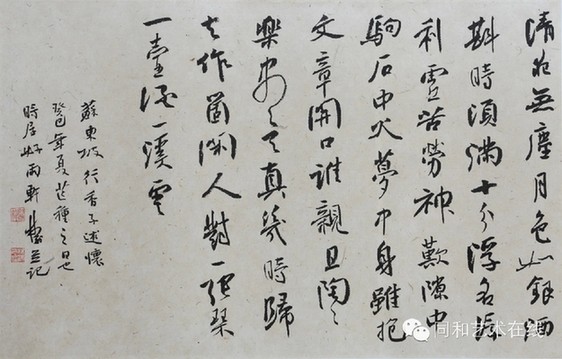 清夜無塵月色如銀酒
斟時須滿十分浮名浮
利虛苦勞神歎隙中
駒石中火夢中身雖抱
文章開口誰親且陶〻
樂盡天真幾時歸
去作箇閑人對一張琴
一壺酒一溪雲
蘇東坡行香子述懷
癸巳年夏芒種之日也
時居好雨軒並記
同和艺术在线